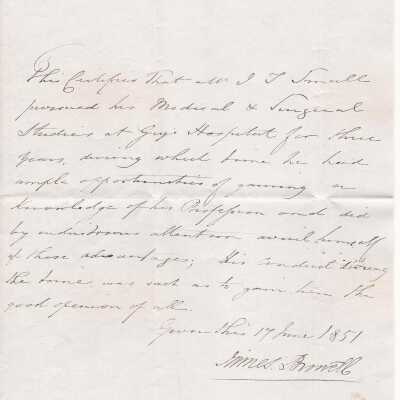 This Certifies that Mr I T Small
pursued his Medical & Surgical
Studies at Guy's Hospital for three
years, during which time he had
ample opportunities of gaining a
knowledge of his Profession and did
by assiduous attention avail himself
of these advantages; His conduct during
the time was such as to gain him the
good opinion of all.
Given this 17 June 1851
James